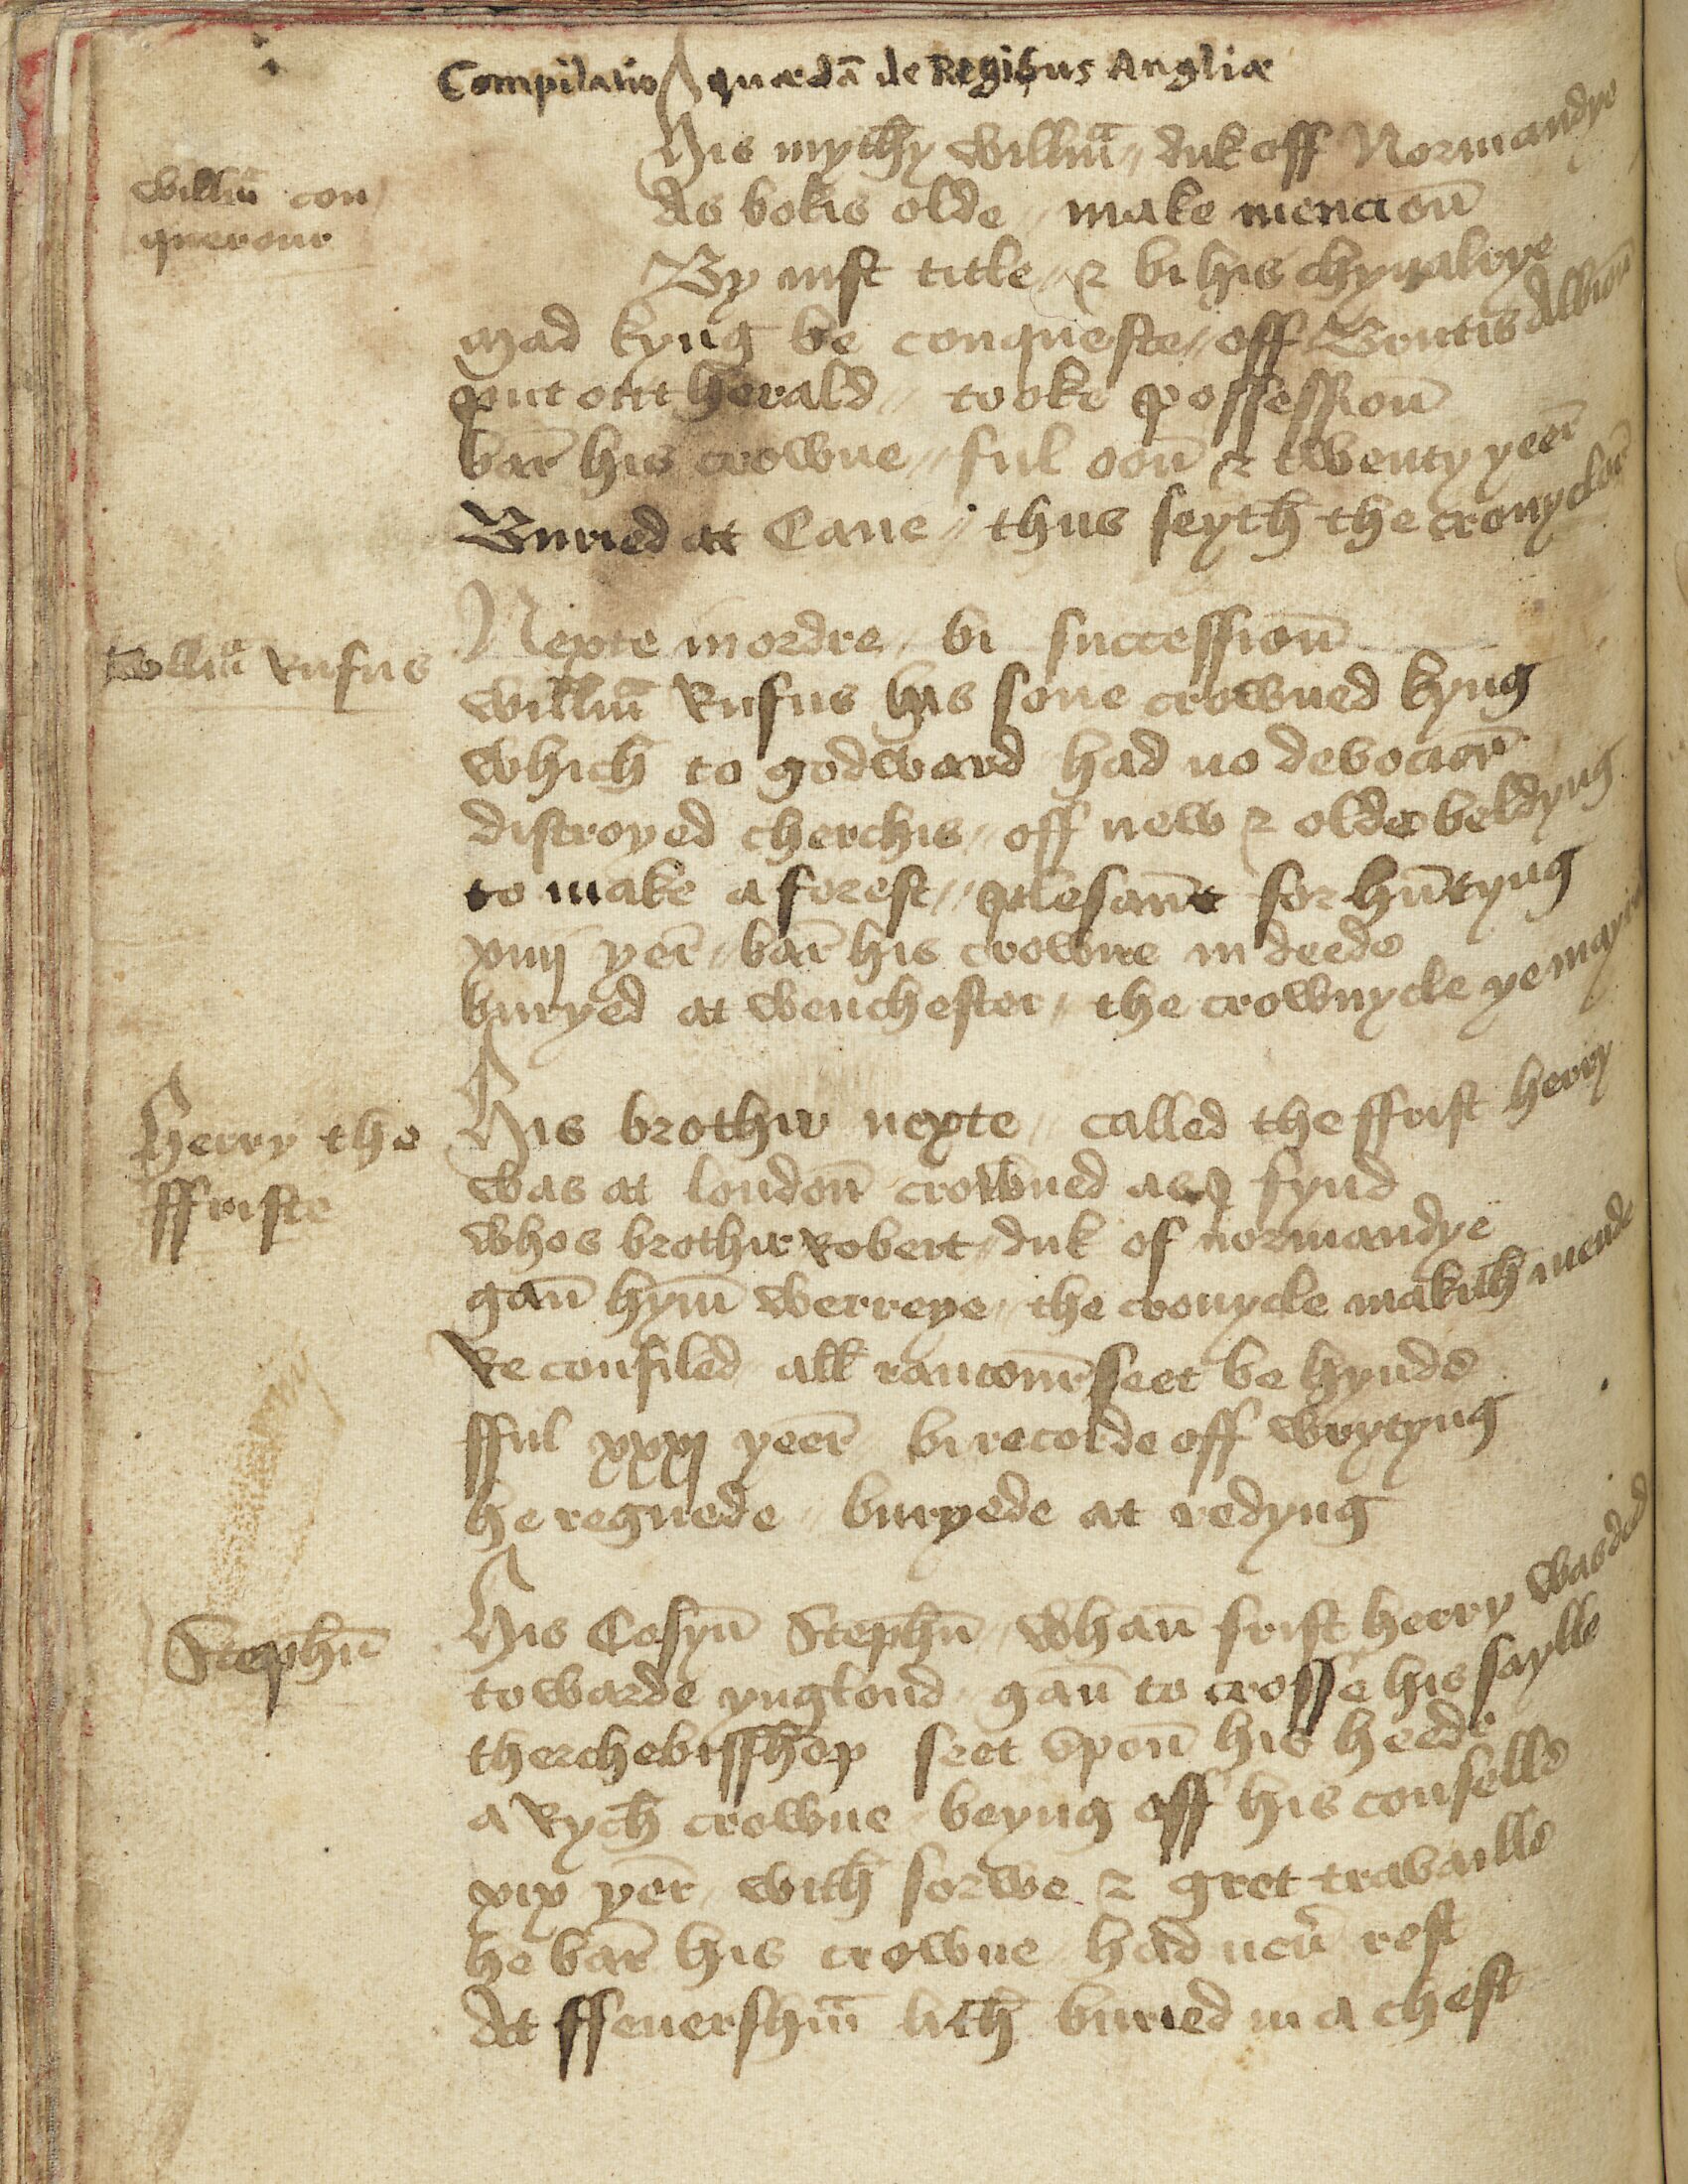 Compilatio quædā de Regibus Angliæ
Willm̄ con
querour
His mythy willm̄ // duk off Normandye
As bokis olde // make mencioū
By iust title // & bi his chyualrye
mad kyng be conqueste // off Brutis Albioū
put out herald // tooke possessioū
bar̄ his crowne // ful oon̄ & twenty yeer̄
Buried at Cane // thus seyth the cronycler̄
Willm̄ Rufus
Nexte in ordre // bi successioū
Willm̄ Rufus his sone crowned kyng
which to godward had no devocioū
distroyed cherchis // off new & olde beldyng
to make a forest // plesaūt for hūtyng
xiiij yer̄ // bar̄ his crowne in deede
buryed at wenchester // the crownycle ye may
Herry the
ffriste
His brothir nexte // called the ffrist herry
was at londoū crowned as I fynd
whos brothir Robert // duk of normandye
gan̄ hym̄ werreye // the cronycle makith mende
Reconsiled all rancour̄ seet be hynde
fful xxxij yeer̄ bi recorde off wrytyng
he regnede // buryede at redyng
Stephn̄
His Cosyn̄ Stephn̄ // whan̄ frist herry was ded
towarde ynglond gan̄ to crosse his saylle
therchebisshop seet vpon̄ his heede
a Rych crowne beyng off his conselle
xix yer̄ with sorwe & gret travaille
he bar̄ his crowne had neu̾ rest
At ffeuershm̄ lith buried in a chest